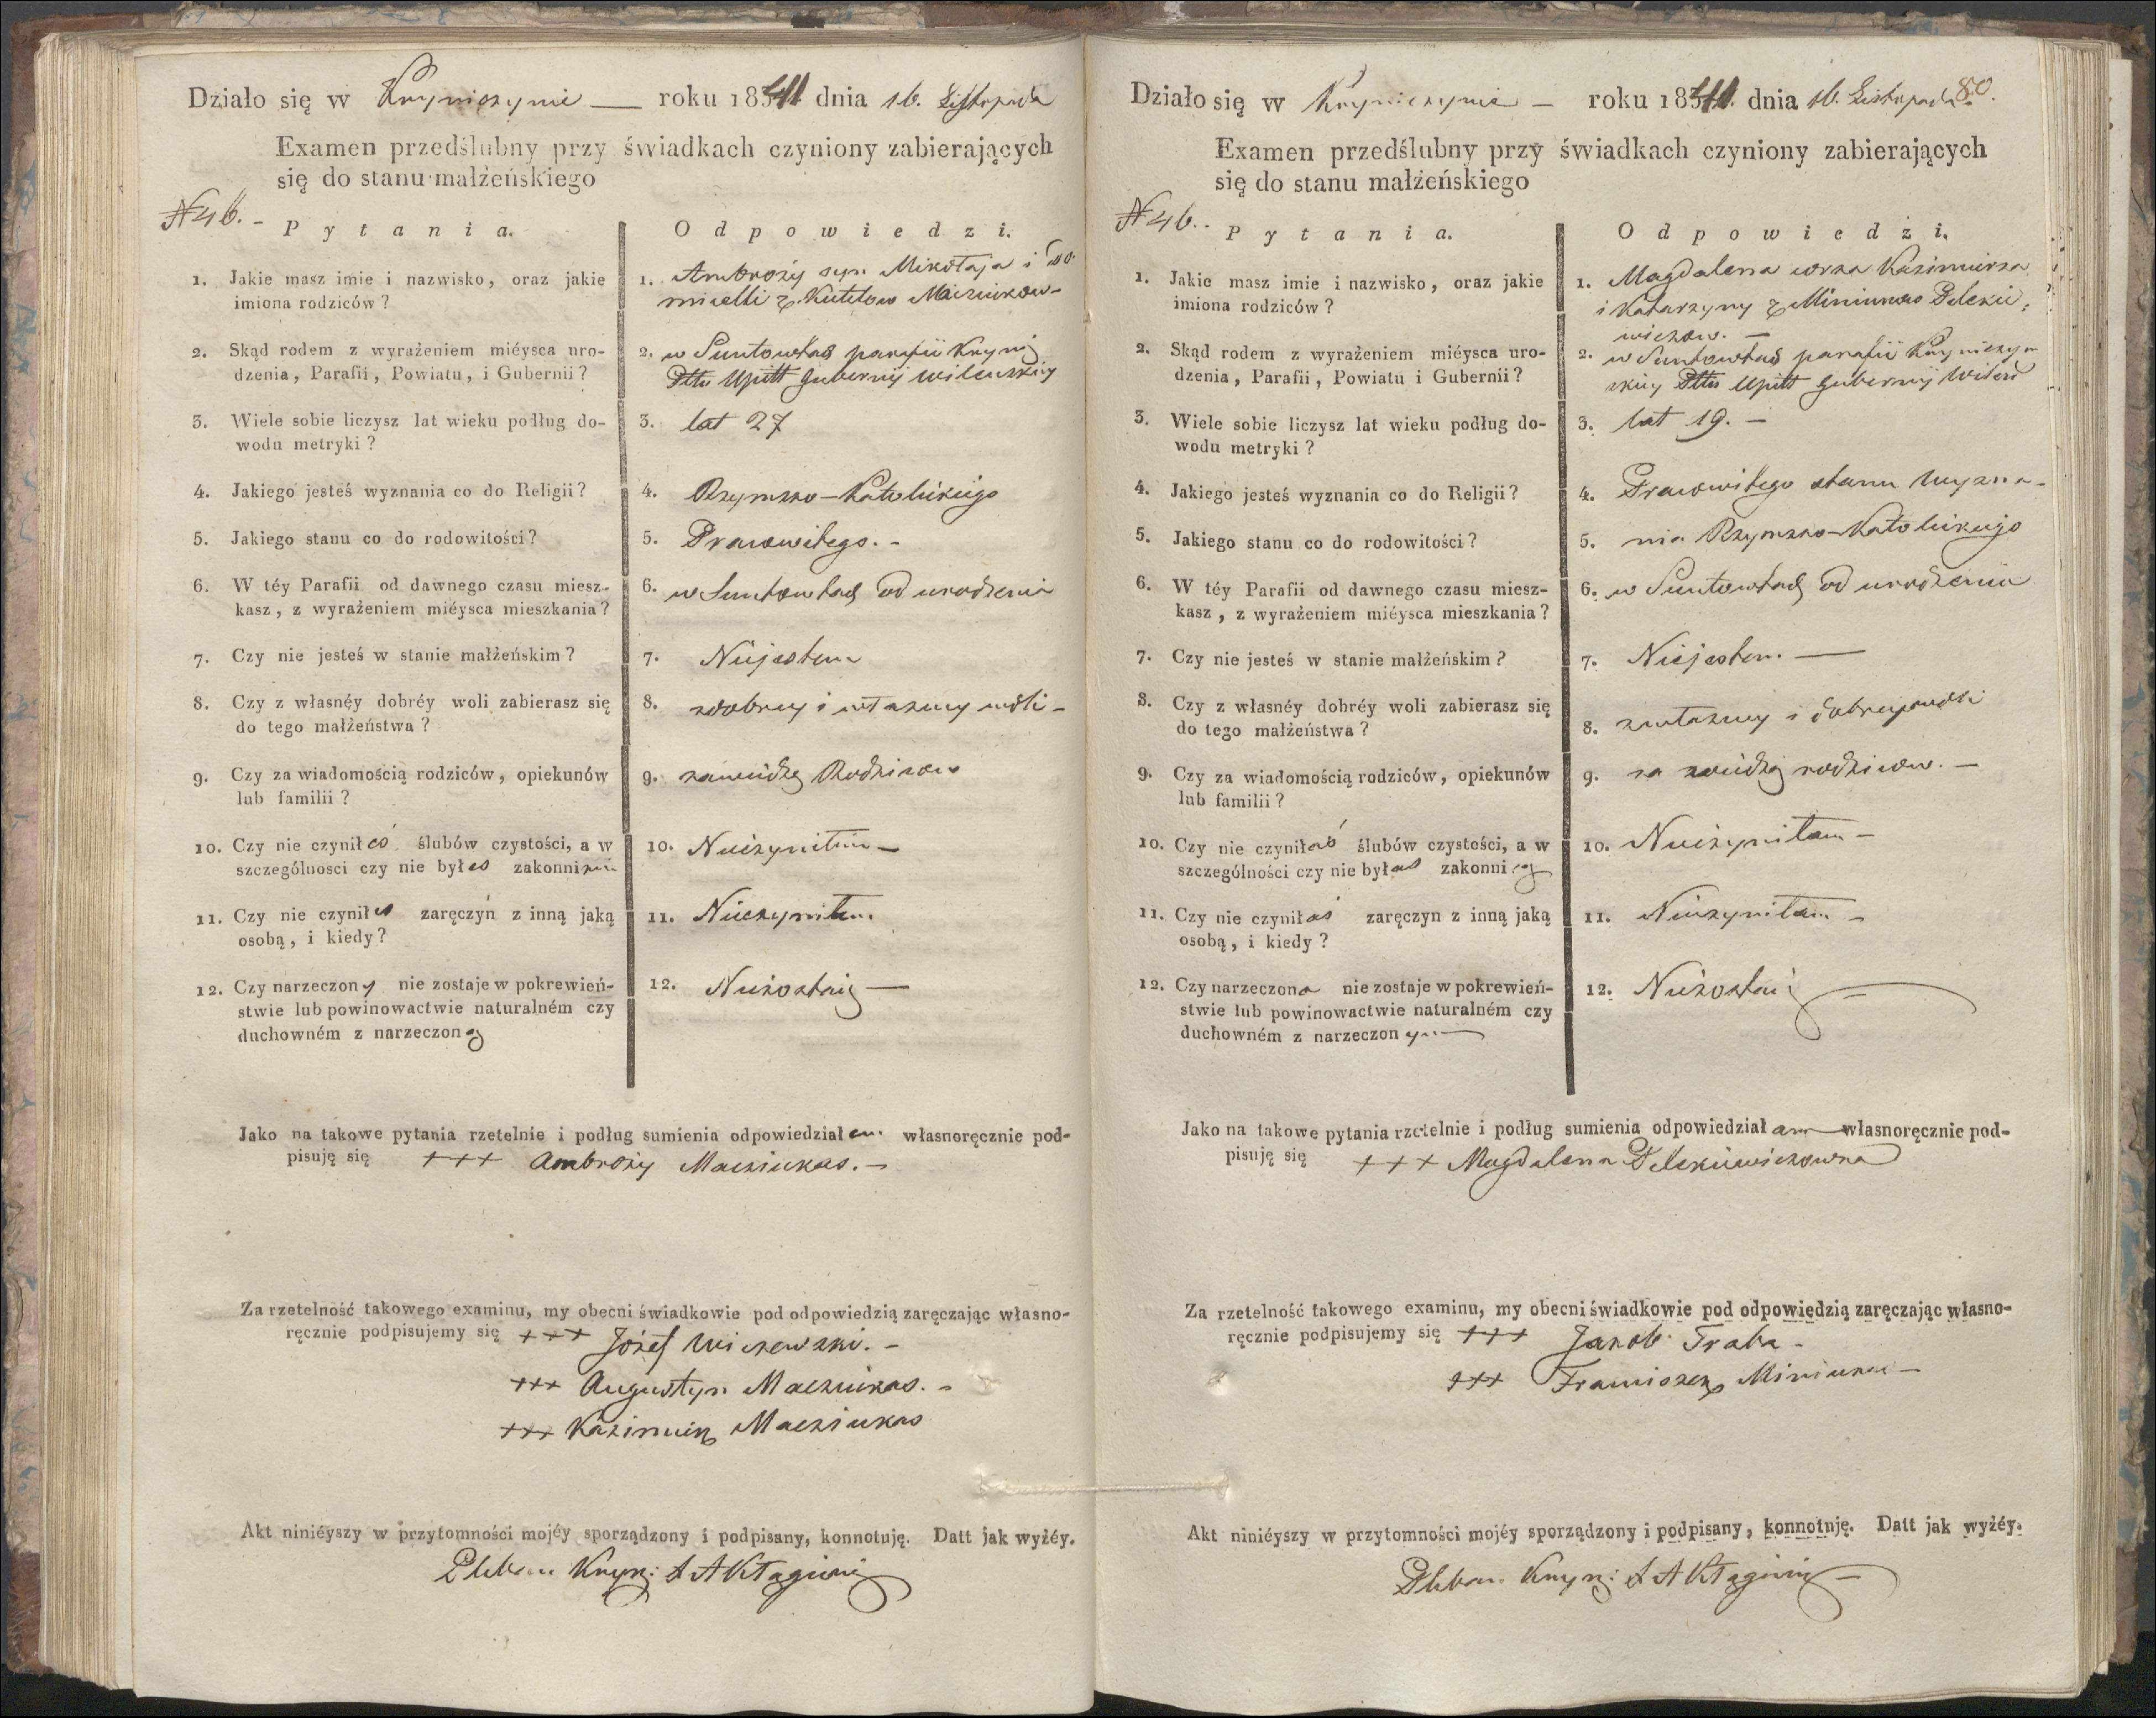 Działo się w Kryniczynie — roku 1841 dnia 16. Listopada
Examen przedślubny przy świadkach czyniony zabierających
się do stanu małżeńskiego
N 46. -
Pytania.
Odpowiedzi.
1. Jakie masz imie i nazwisko, oraz jakie
imiona rodziców?
1. Ambroży syn Mikołaja i Do-
micelli z Kutelow Maciukow-
2. Skąd rodem z wyrażeniem miéysca uro-
dzenia, Parafii, Powiatu, i Gubernii?
2. w Suntowtach parafii Kryni
Pttu Upitt gubernij wilenskiey
3. Wiele sobie liczysz lat wieku podług do-
wodu metryki?
3. lat 27
4. Jakiego jesteś wyznania co do Religii?
4. Rzymsko-Katolickiego
5. Jakiego stanu co do rodowitości?
5. Prawowitego. -
6. W téy Parafii od dawnego czasu miesz-
kasz, z wyrażeniem miéysca mieszkania?
6. w Suntowtach od urodzenia
7. Czy nie jesteś w stanie małżeńskim?
7. Niejestem
8. Czy z własnéy dobréy woli zabierasz się
do tego małżeństwa?
8. zdobrey i własney woli -
9. Czy za wiadomością rodziców, opiekunów
lub familii?
9. zawiedzą Rodzicow
10. Czy nie czyniłeś ślubów czystości, a w
szczególnosci czy nie byłes zakonnikiem
10. Nieczyniłem -
11. Czy nie czyniłes zaręczyń z inną jaką
osobą, i kiedy?
11. Nieczyniłem.
12. Czy narzeczony nie zostaje w pokrewień-
stwie lub powinowactwie naturalném czy
duchowném z narzeczoną
12. Niezostaię —
Jako na takowe pytania rzetelnie i podług sumienia odpowiedziałem. własnoręcznie pod-
pisuję się +++ Ambroży Macziukas. -
Za rzetelność takowego examinu, my obecni świadkowie pod odpowiedzią zaręczając własno-
ręcznie podpisujemy się +++ Józef -
+++ Augustyn Macziukas. -
+++ Kazimierz Macziukas
Akt niniéyszy w przytomności mojéy sporządzony i podpisany, konnotuję. Datt jak wyżéy.
Pleban Kryn:
Działo się w Kryniczynie — roku 1841. dnia 16. Listopada
80.
Examen przedślubny przy świadkach czyniony zabierających
się do stanu małżeńskiego
N 46..
Pytania.
Odpowiedzi.
1. Jakie masz imie i nazwisko, oraz jakie
imiona rodziców?
1. Magdalena corka Kazimierza
i Katarzyny z Miniukow Pelekie-
wiczow. —
2. Skąd rodem z wyrażeniem miéysca uro-
dzenia, Parafii, Powiatu i Gubernii?
2. w Suntowtach parafii Kryniczyn
skiey Pttu Upitt gubernij Wilen
3. Wiele sobie liczysz lat wieku podług do-
wodu metryki?
3. lat 19. —
4. Jakiego jesteś wyznania co do Religii?
4. Prawowitego stanu wyzna-
5. Jakiego stanu co do rodowitości?
5. nia Rzymsko-Katolickiego
6. W téy Parafii od dawnego czasu miesz-
kasz, z wyrażeniem miéysca mieszkania?
6. w Suntowtach od urodzenia
7. Czy nie jesteś w stanie małżeńskim?
7. Niejestem. —
8. Czy z własnéy dobréy woli zabierasz się
do tego małżeństwa?
8. zwłasney i dobrey woli
9. Czy za wiadomością rodziców, opiekunów
lub familii?
9. za wiedzą rodzicow. —
10. Czy nie czyniłaś ślubów czystości, a w
szczególności czy nie byłas zakonnicą
10. Nieczyniłam -
11. Czy nie czyniłaś zaręczyn z inną jaką
osobą, i kiedy?
11. Nieczyniłam -
12. Czy narzeczona nie zostaje w pokrewień-
stwie lub powinowactwie naturalném czy
duchowném z narzeczonym —
12. Niezostaię
Jako na takowe pytania rzetelnie i podług sumienia odpowiedziałam własnoręcznie pod-
pisuję się +++ Magdalena Pelekiewiczowna
Za rzetelność takowego examinu, my obecni świadkowie pod odpowiedzią zaręczając własno-
ręcznie podpisujemy się +++ Jakob Traba -
+++ Franciszek Miniukas -
Akt niniéyszy w przytomności mojéy sporządzony i podpisany, konnotuję. Datt jak wyżéy.
Pleban Kryn: